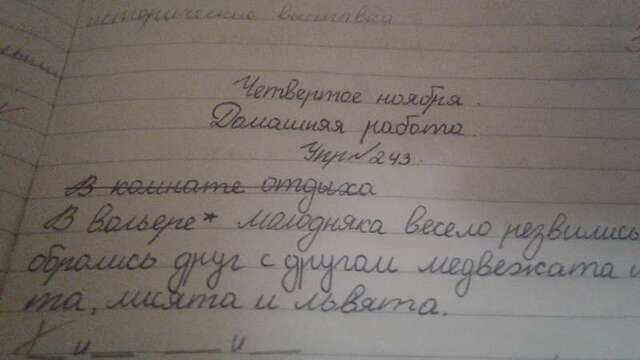 исторические выставки
Четвертое ноября.
Домашняя работа.
Упр№243.
В комнате отдыха
В вольере* молодняка весело резвились
обролись друг с другом медвежата и
та, лисята и львята.
и и